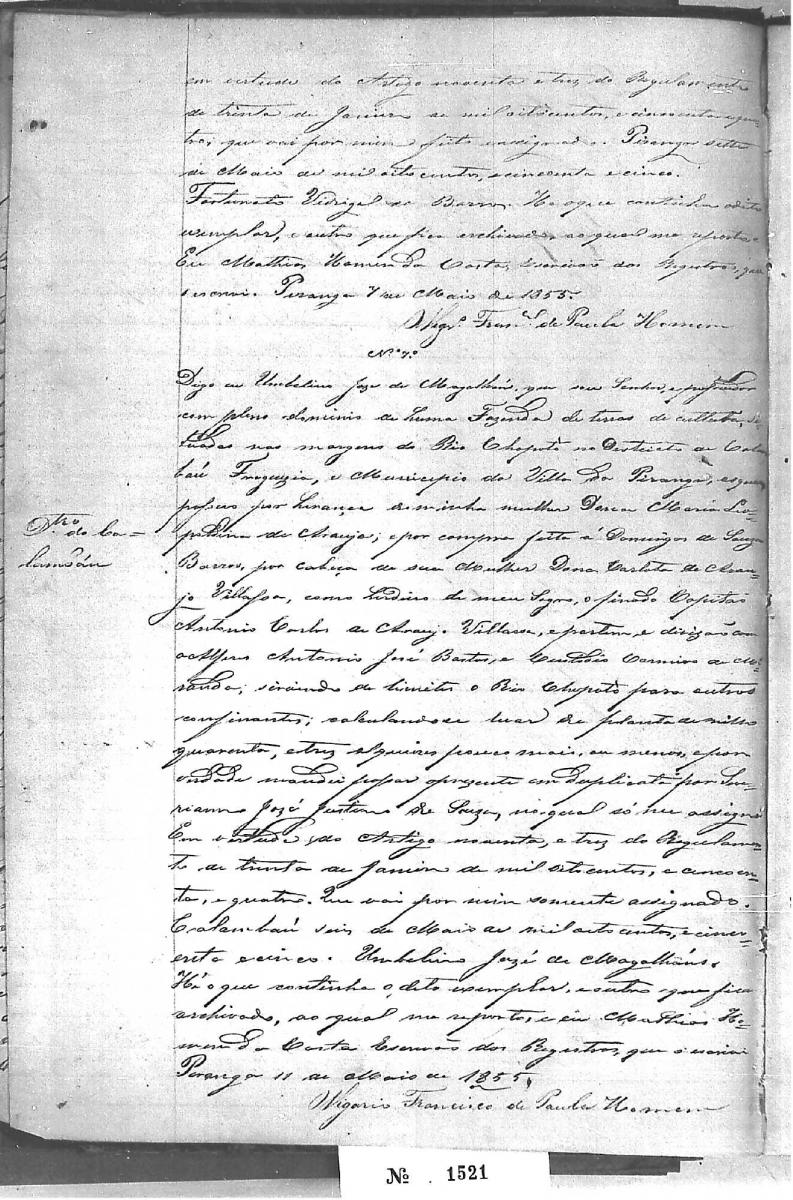 em virtude do Artigo noventa e tres do Regulamento
de trinta de Janeiro de mil oitocentos, e cincoenta e qua-
tro, que vai por mim feito e assignado. Piranga sette
de Maio de mil oito centos, e cincoenta e cinco.
Fortunato Vidigal de Barros. He o que continha o dito
exemplar, e outro que fica archivado, ao qual me reporto.
Eu Mathias Homem da Costa, Escrivão dos Registros, que
escrevi. Piranga 7 de Maio de 1855.
Vigr.º Fran.co de Paula Homem
Nº 7º
Digo eu Umbelino Jozé de Magalhães, que sou Senhor, e possuidor
com pleno dominio de huma Fazenda de terras de cultura, si-
tuadas nas margens do Rio Chopotó no Districto de Calam-
báu Freguezia, e Municipio da Villa da Piranga, e que
possuo por herança de minha mulher Dona Maria Leo-
poldina de Araujo; e por compra feita á Domingos de Souza
Barros, por cabeça de sua Mulher Dona Carlota de Arau-
jo Villassa, como herdeiro de meu Sogro, o finado Capitão
Antonio Carlos de Araujo Villassa, e partem, e divizão com
o Alferes Antonio José Bastos, e Custodio Carneiro de Mi-
randa; servindo de limites o Rio Chopotó para outros
confinantes; calculandose levar de planta de milho
quarenta, e tres alqueires pouco mais, ou menos, e por
verdade mandei passar o prezente em duplicata por
Jozé Justino de Souza, no qual só me assigno
Em virtude do Artigo noventa, e tres do Regulamen-
to de trinta de Janeiro de mil oitocentos, e cincoen-
ta, e quatro. Que vai por mim somente assignado.
Calambáu seis de Maio de mil oito centos, e cinco-
enta e cinco. Umbelino Jozé de Magalhães.
Hé o que continha o dito exemplar, e outro que fica
archivado, ao qual me reporto, e eu Mathias Ho-
mem da Costa Escrivão dos Registros, que o escrevi
Piranga 11 de Maio de 1855.
Vigario Francisco de Paula Homem
D.tro do Ca-
lambáu
Nº 1521